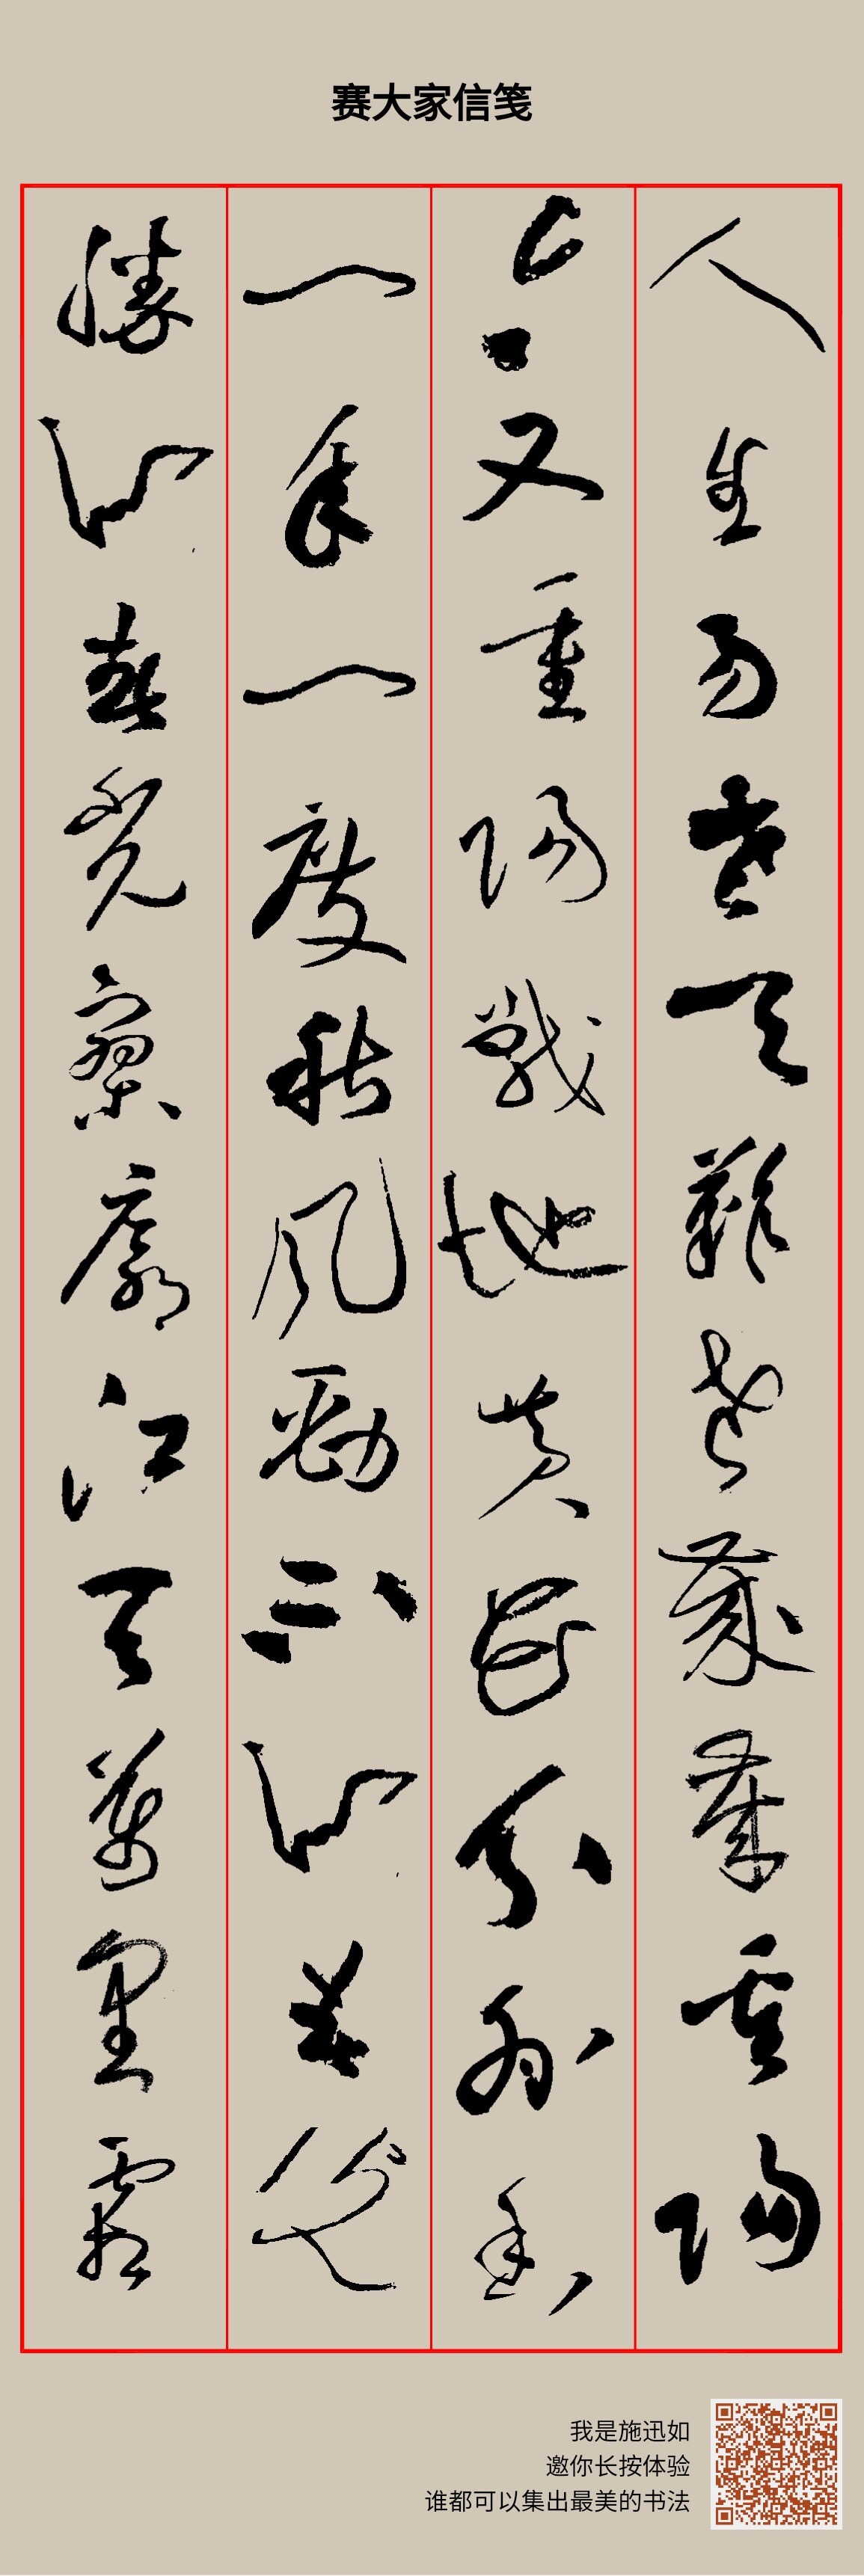 赛大家信笺
人生易老天難老歲歲重陽
今又重陽戰地黃花分外香
一年一度秋風勁不似春光
勝似春光寥廓江天萬里霜
我是施迅如
邀你长按体验
谁都可以集出最美的书法